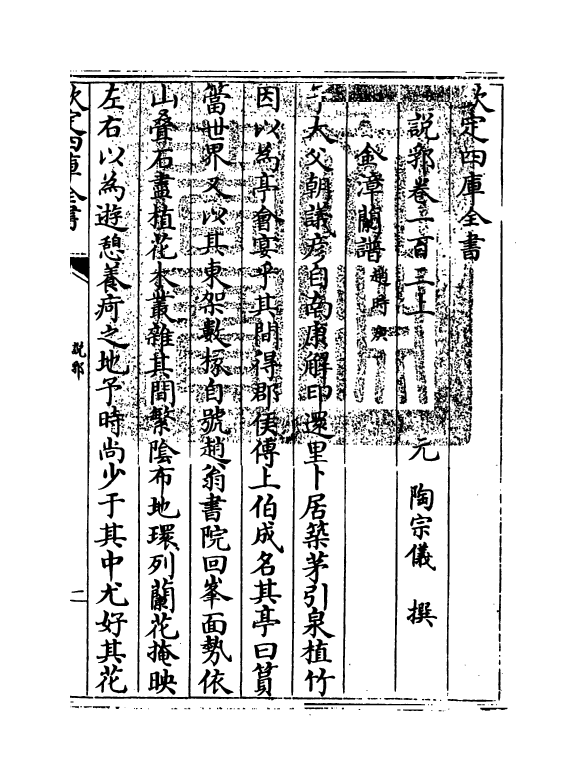 欽定四庫全書
說郛卷一百三上　元　陶宗儀　撰
金漳蘭譜趙時庚
予大父朝議彦自南康解印還里卜居築茅引泉植竹
因以為亭會宴乎其間得郡侯傅上伯成名其亭曰篔
簹世界又以其東架數椽自號趙翁書院回峯面勢依
山疊石盡植花木叢雜其間繁陰布地環列蘭花掩映
左右以為遊憩養疴之地予時尚少于其中尤好其花
欽定四庫全書
說郛
二